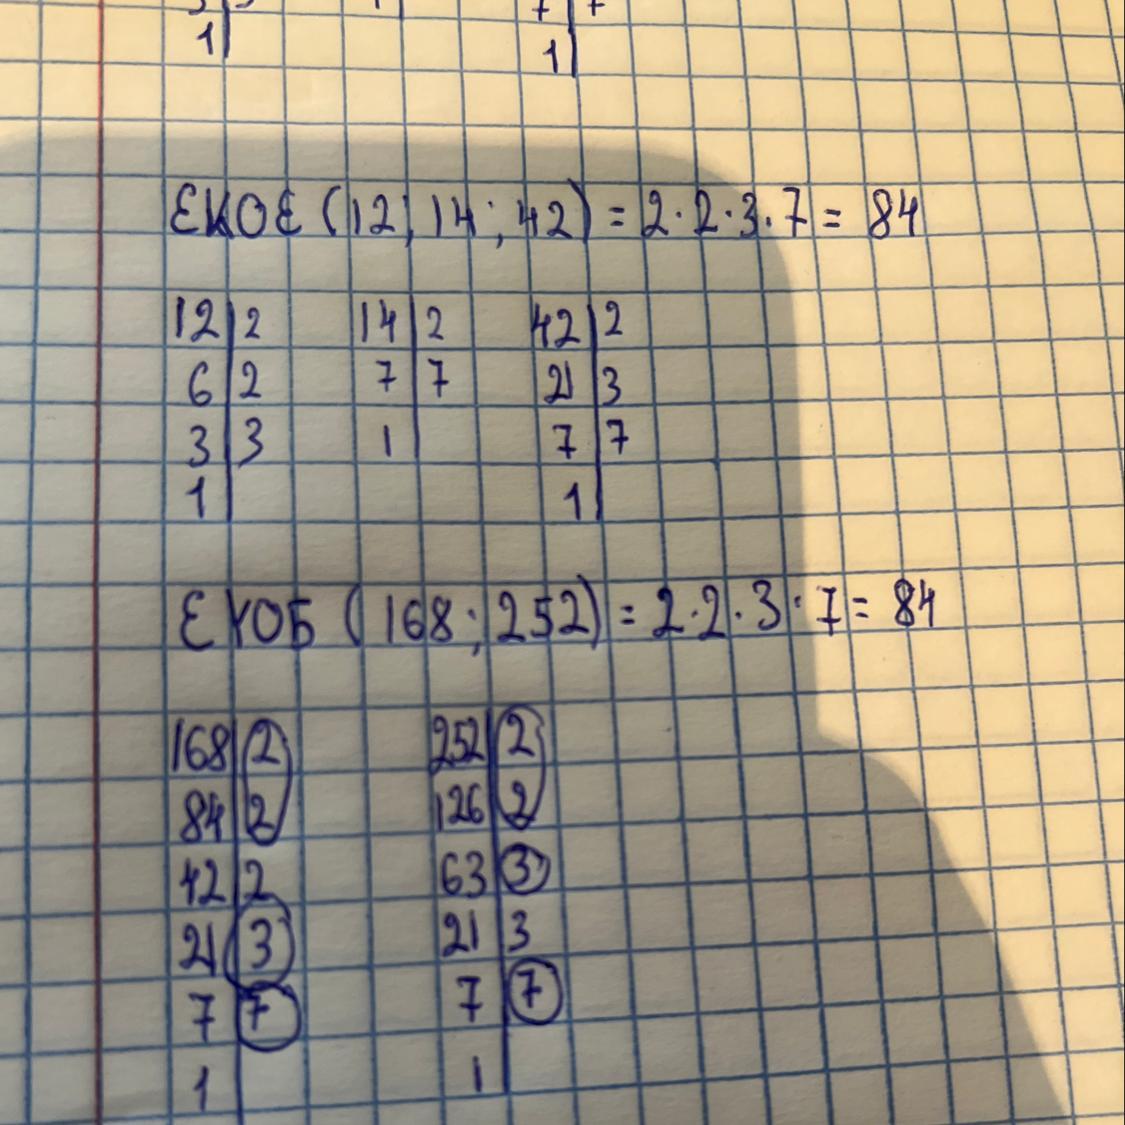 1 1
ЕКОЕ (12; 14; 42) = 2·2·3·7 = 84
12 2 14 2 42 2
6 2 7 7 21 3
3 3 1 7 7
1 1
ЕКОБ (168; 252) = 2·2·3·7 = 84
168 2 252 2
84 2 126 2
42 2 63 3
21 3 21 3
7 7 7 7
1 1